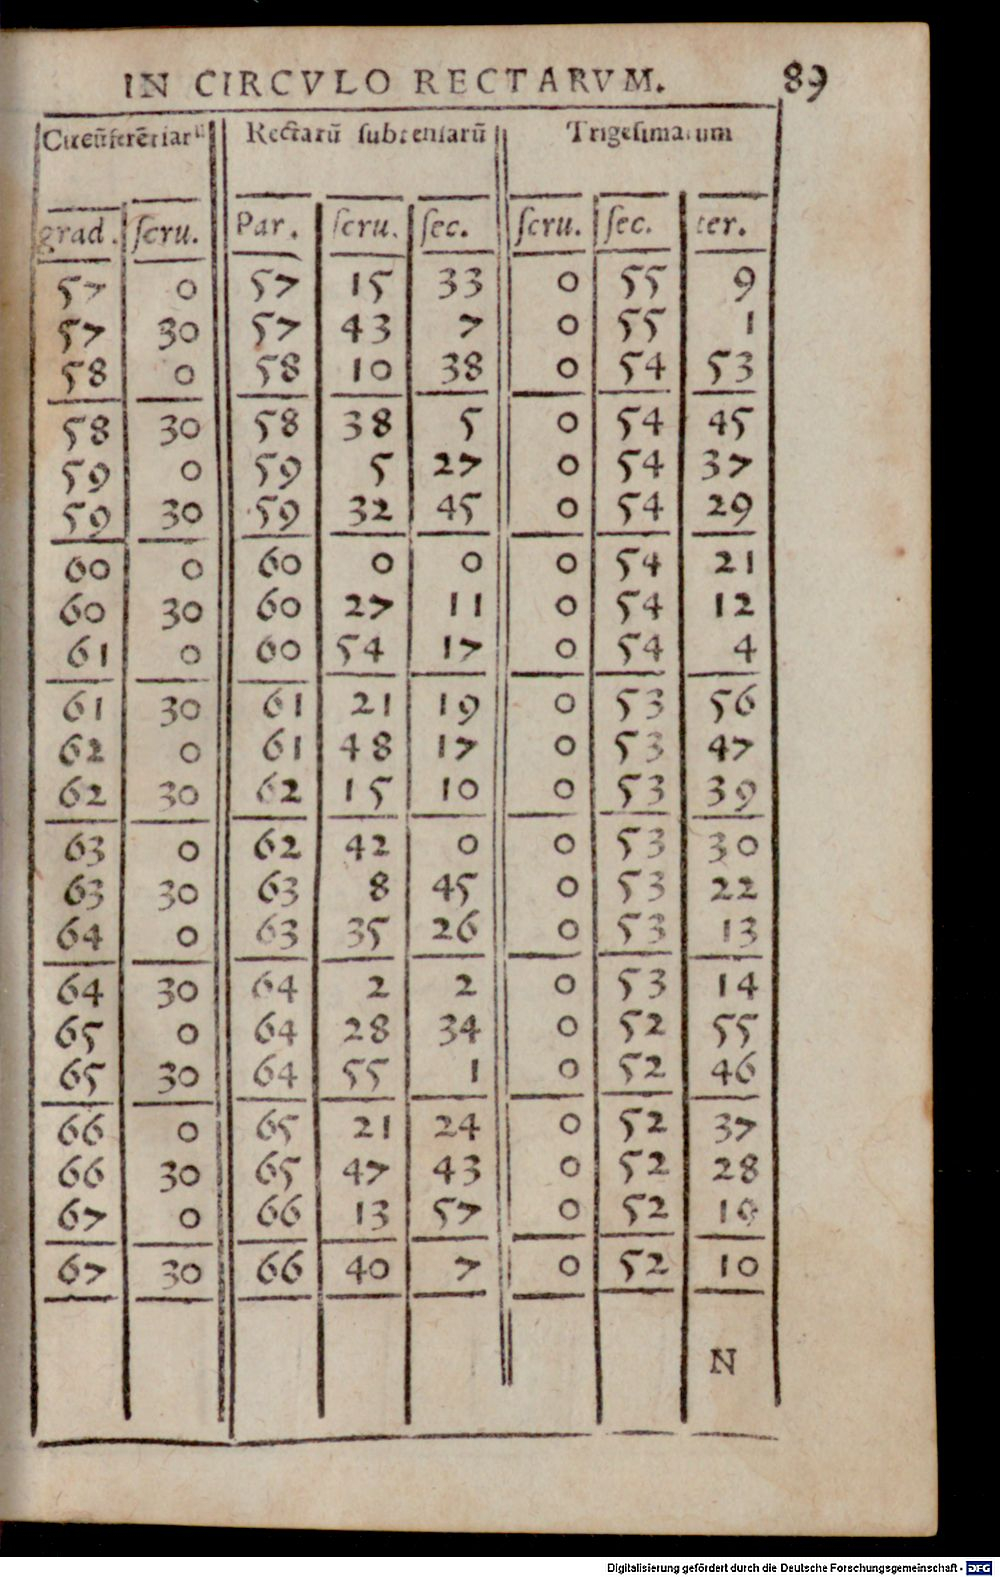 IN CIRCVLO RECTARVM. 89
Circūferētiarū Rectarū subtensarū Trigesimarum
grad. ſcru. Par. ſcru. ſec. ſcru. ſec. ter.
57 0 57 15 33 0 55 9
57 30 57 43 7 0 55 1
58 0 58 10 38 0 54 53
58 30 58 38 5 0 54 45
59 0 59 5 27 0 54 37
59 30 59 32 45 0 54 29
60 0 60 0 0 0 54 21
60 30 60 27 11 0 54 12
61 0 60 54 17 0 54 4
61 30 61 21 19 0 53 56
62 0 61 48 17 0 53 47
62 30 62 15 10 0 53 39
63 0 62 42 0 0 53 30
63 30 63 8 45 0 53 22
64 0 63 35 26 0 53 13
64 30 64 2 2 0 53 14
65 0 64 28 34 0 52 55
65 30 64 55 1 0 52 46
66 0 65 21 24 0 52 37
66 30 65 47 43 0 52 28
67 0 66 13 57 0 52 19
67 30 66 40 7 0 52 10
N
Digitalisierung gefördert durch die Deutsche Forschungsgemeinschaft - DFG